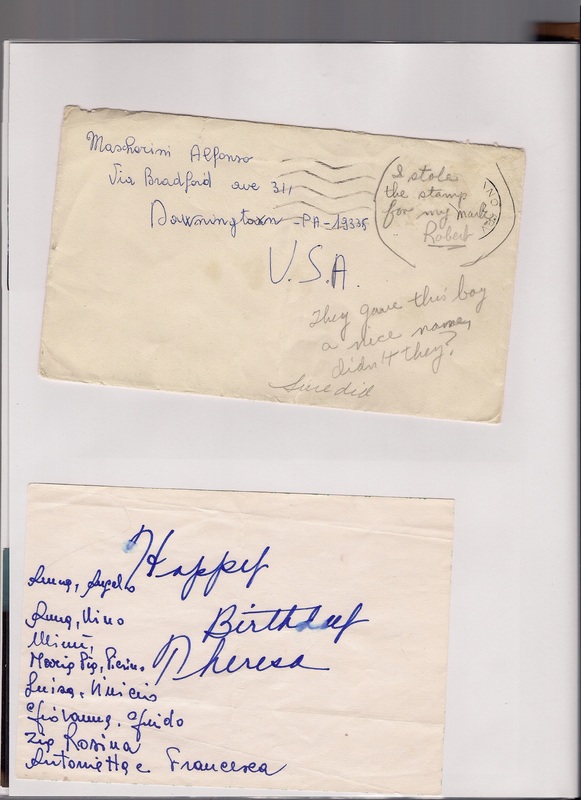 Mascharini Alfonso
Via Bradford ave 311
Downingtown -PA- 19335
U.S.A.
I stole
the stamp
for my mark
Robert
They gave this boy
a nice name,
didn't they?
Sure did
Happy
Birthday
Theresa
Anna, Angelo
Anna, Nino
Mimì,
Maria Pia, Pierino
Luisa, Vinicio
Giovanna, Guido
Zia Rosina
Antonietta e Francesca